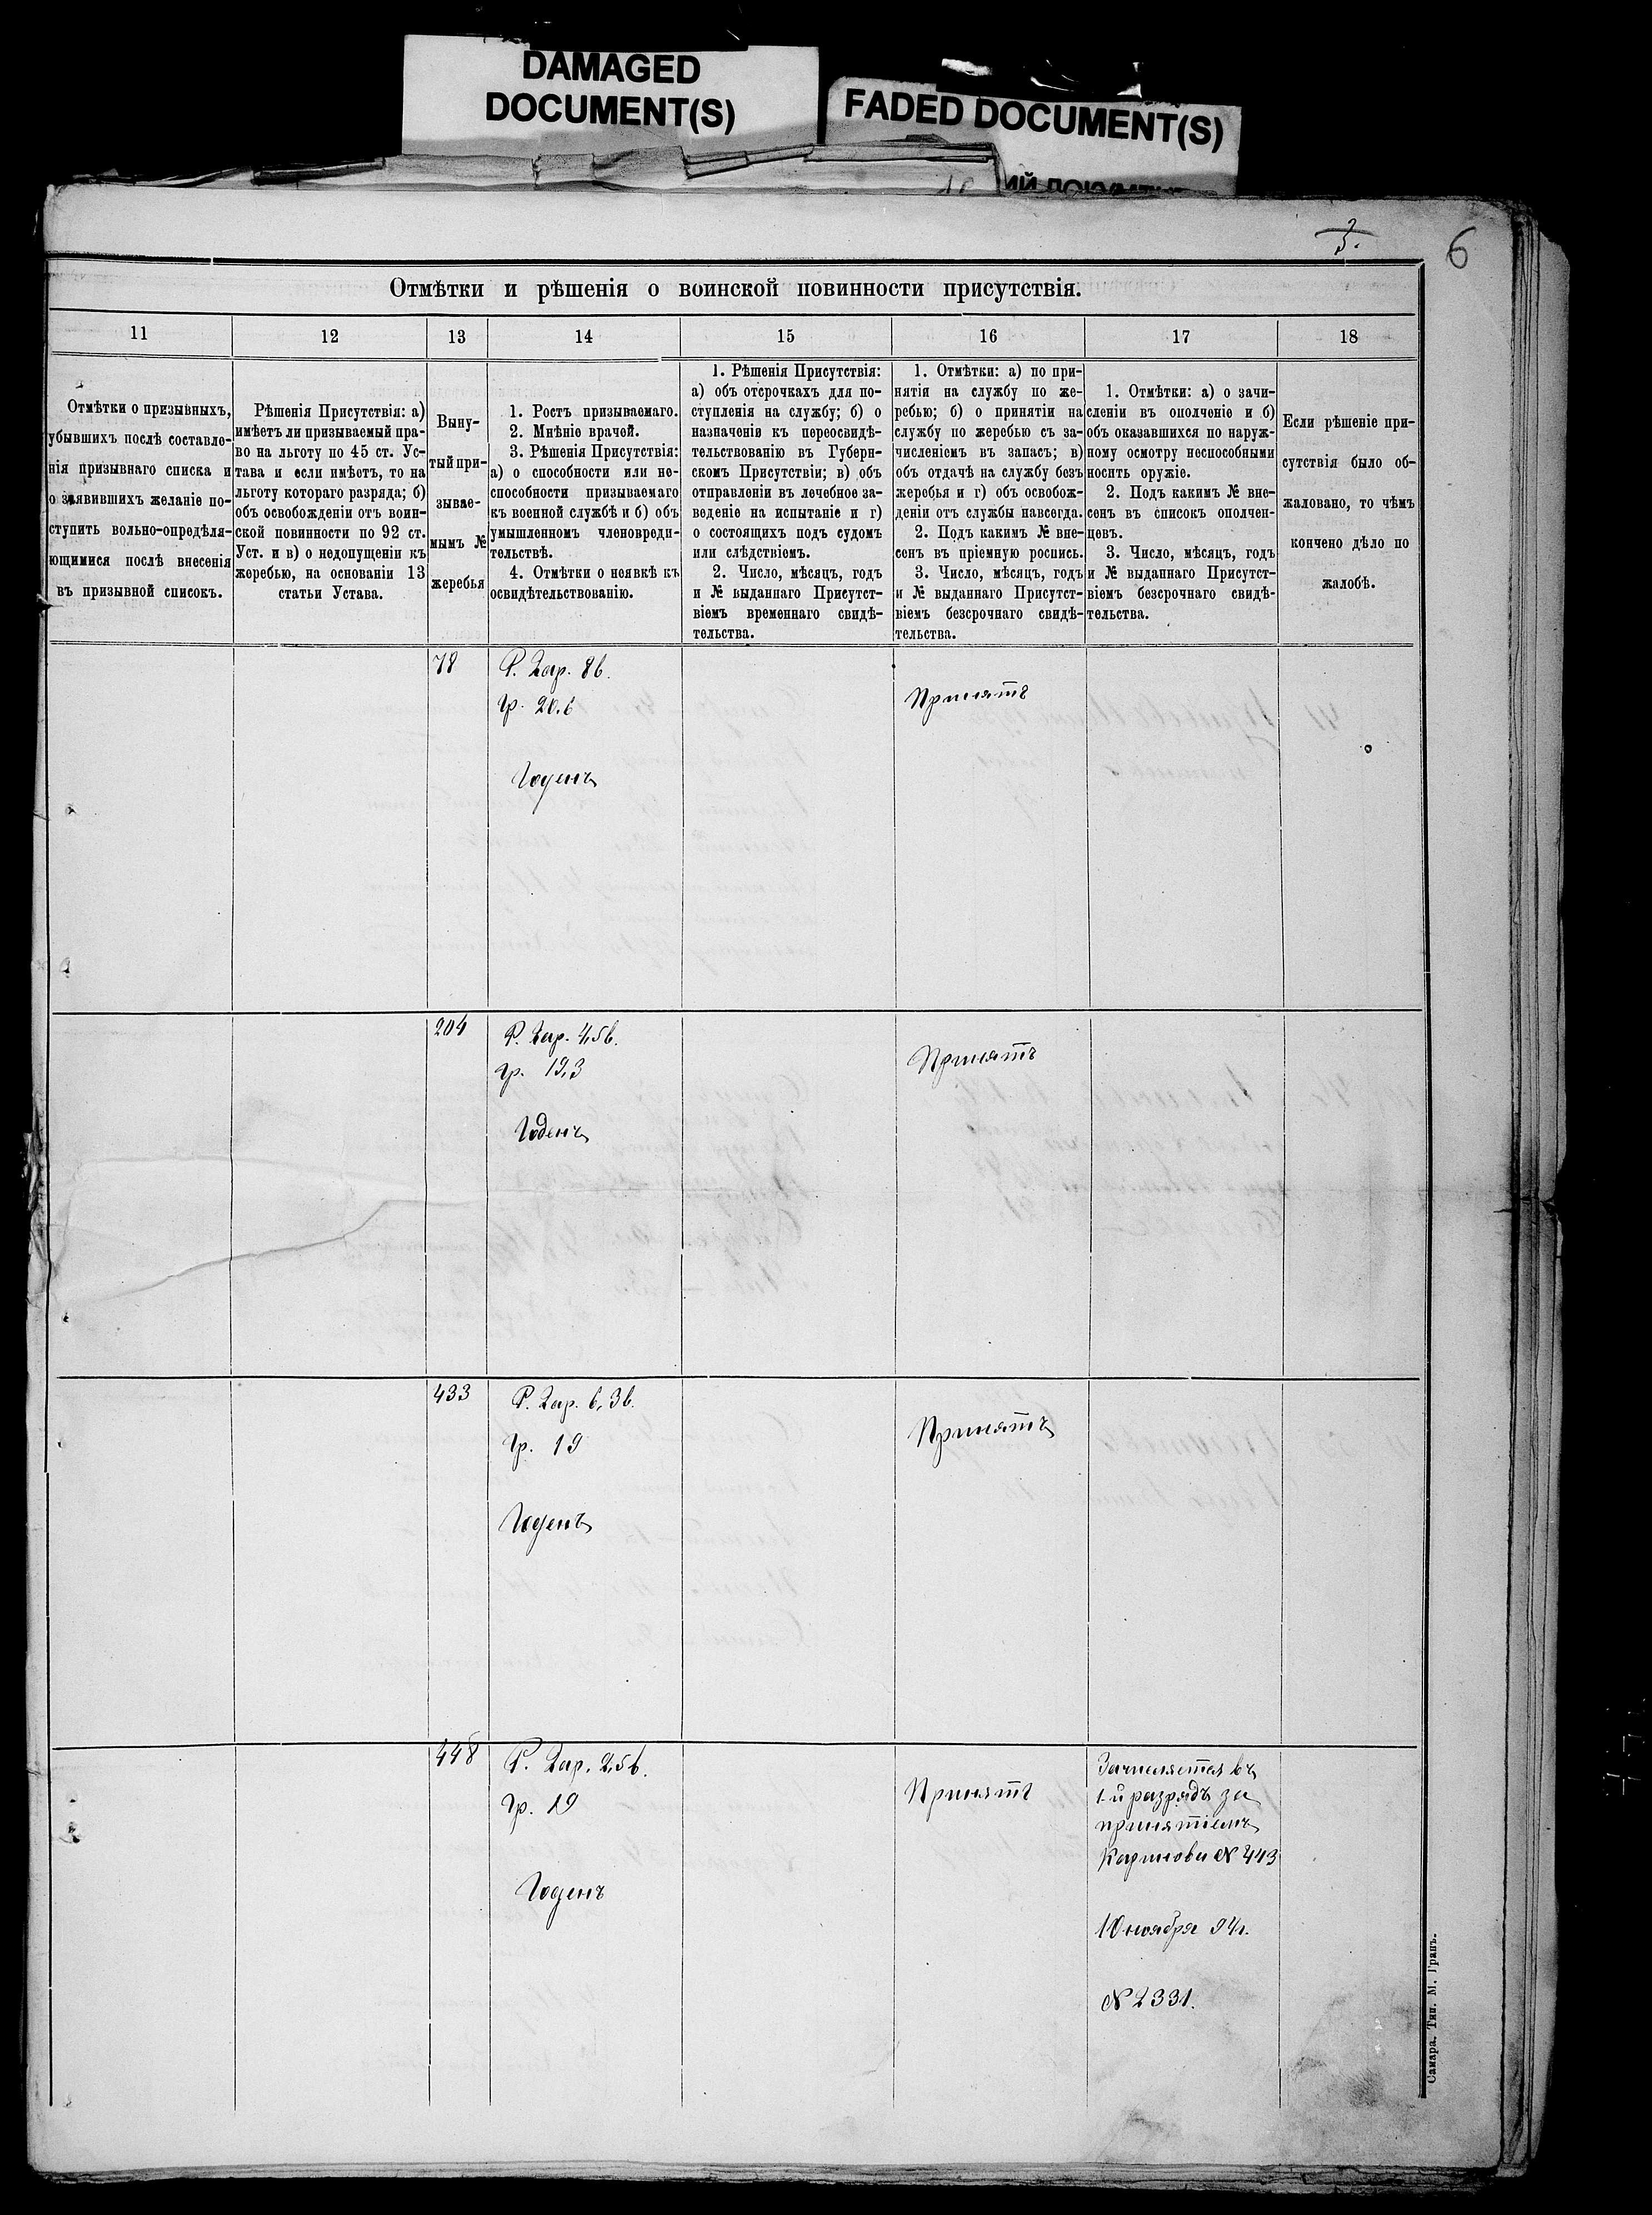 DAMAGED
DOCUMENT(S)
FADED DOCUMENT(S)
3.
6
Отмѣтки и рѣшенія о воинской повинности присутствія.
11
12
13
14
15
16
17
18
Отмѣтки о призывныхъ,
убывшихъ послѣ составле-
нія призывнаго списка и
о заявившихъ желаніе по-
ступить вольно-опредѣля-
ющимися послѣ внесенія
въ призывной список.
Рѣшенія Присутствія: а)
имѣетъ ли призываемый пра-
во на льготу по 45 ст. Ус-
тава и если имѣетъ, то на
льготу котораго разряда; б)
объ освобожденіи отъ воин-
ской повинности по 92 ст.
Уст. и в) о недопущеніи къ
жеребью, на основаніи 13
статьи Устава.
Выну-
тый при-
зывае-
мымъ №
жеребья
1. Ростъ призываемаго.
2. Мнѣніе врачей.
3. Рѣшенія Присутствія:
а) о способности или не-
способности призываемаго
къ военной службѣ и б) объ
умышленномъ членовреди-
тельствѣ.
4. Отмѣтки о неявкѣ къ
освидѣтельствованію.
1. Рѣшенія Присутствія:
а) объ отсрочкахъ для по-
ступленія на службу; б) о
назначеніи къ переосвидѣ-
тельствованію въ Губерн-
скомъ Присутствіи; в) объ
отправленіи въ лечебное за-
веденіе на испытаніе и г)
о состоящихъ подъ судомъ
или слѣдствіемъ.
2. Число, мѣсяцъ, годъ
и № выданнаго Присутст-
віемъ временнаго свидѣ-
тельства.
1. Отмѣтки: а) по при-
нятіи на службу по же-
ребью; б) о принятіи на
службу по жеребью съ за-
численіемъ въ запасъ; в)
объ отдачѣ на службу безъ
жеребья и г) объ освобож-
деніи отъ службы навсегда.
2. Подъ какимъ № вне-
сенъ въ пріемную роспись.
3. Число, мѣсяцъ, годъ
и № выданнаго Присутст-
віемъ безсрочнаго свидѣ-
тельства.
1. Отмѣтки: а) о зачи-
сленіи въ ополченіе и б)
объ оказавшихся по наруж-
ному осмотру неспособными
носить оружіе.
2. Подъ какимъ № вне-
сенъ въ списокъ ополчен-
цевъ.
3. Число, мѣсяцъ, годъ
и № выданнаго Присутст-
віемъ безсрочнаго свидѣ-
тельства.
Если рѣшеніе при-
сутствія было об-
жаловано, то чѣмъ
кончено дѣло по
жалобѣ.
78
Р. 2ар. 8в.
гр. 20,6
Годенъ
Принятъ
204
Р. 2ар. 4,5в.
гр. 19,3
Годенъ
Принятъ
433
Р. 2ар. 6,3в.
гр. 19
Годенъ
Принятъ
448
Р. 2ар. 2,5в.
гр. 19
Годенъ
Принятъ
Зачисляется въ
1-й разрядъ за
принятіемъ
№ 443
10 ноября 94г.
№ 2331.
Самара. Тип. М. Гранъ.